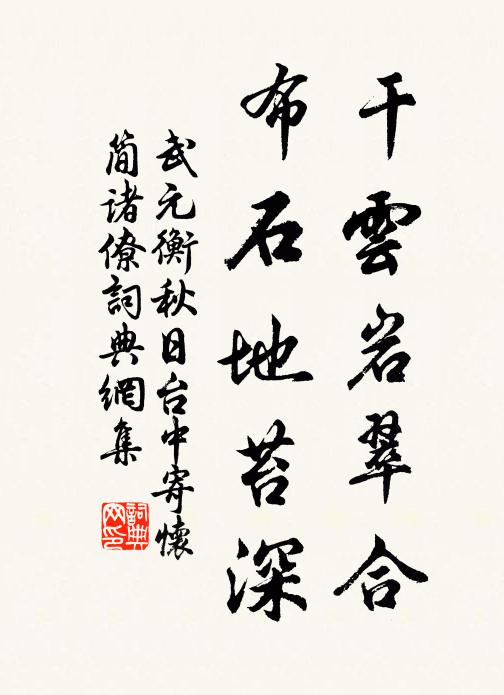 干雲岩翠合
布石地苔深
武元衡秋日台中寄懷
简诸僚詞典網集
詞典网印